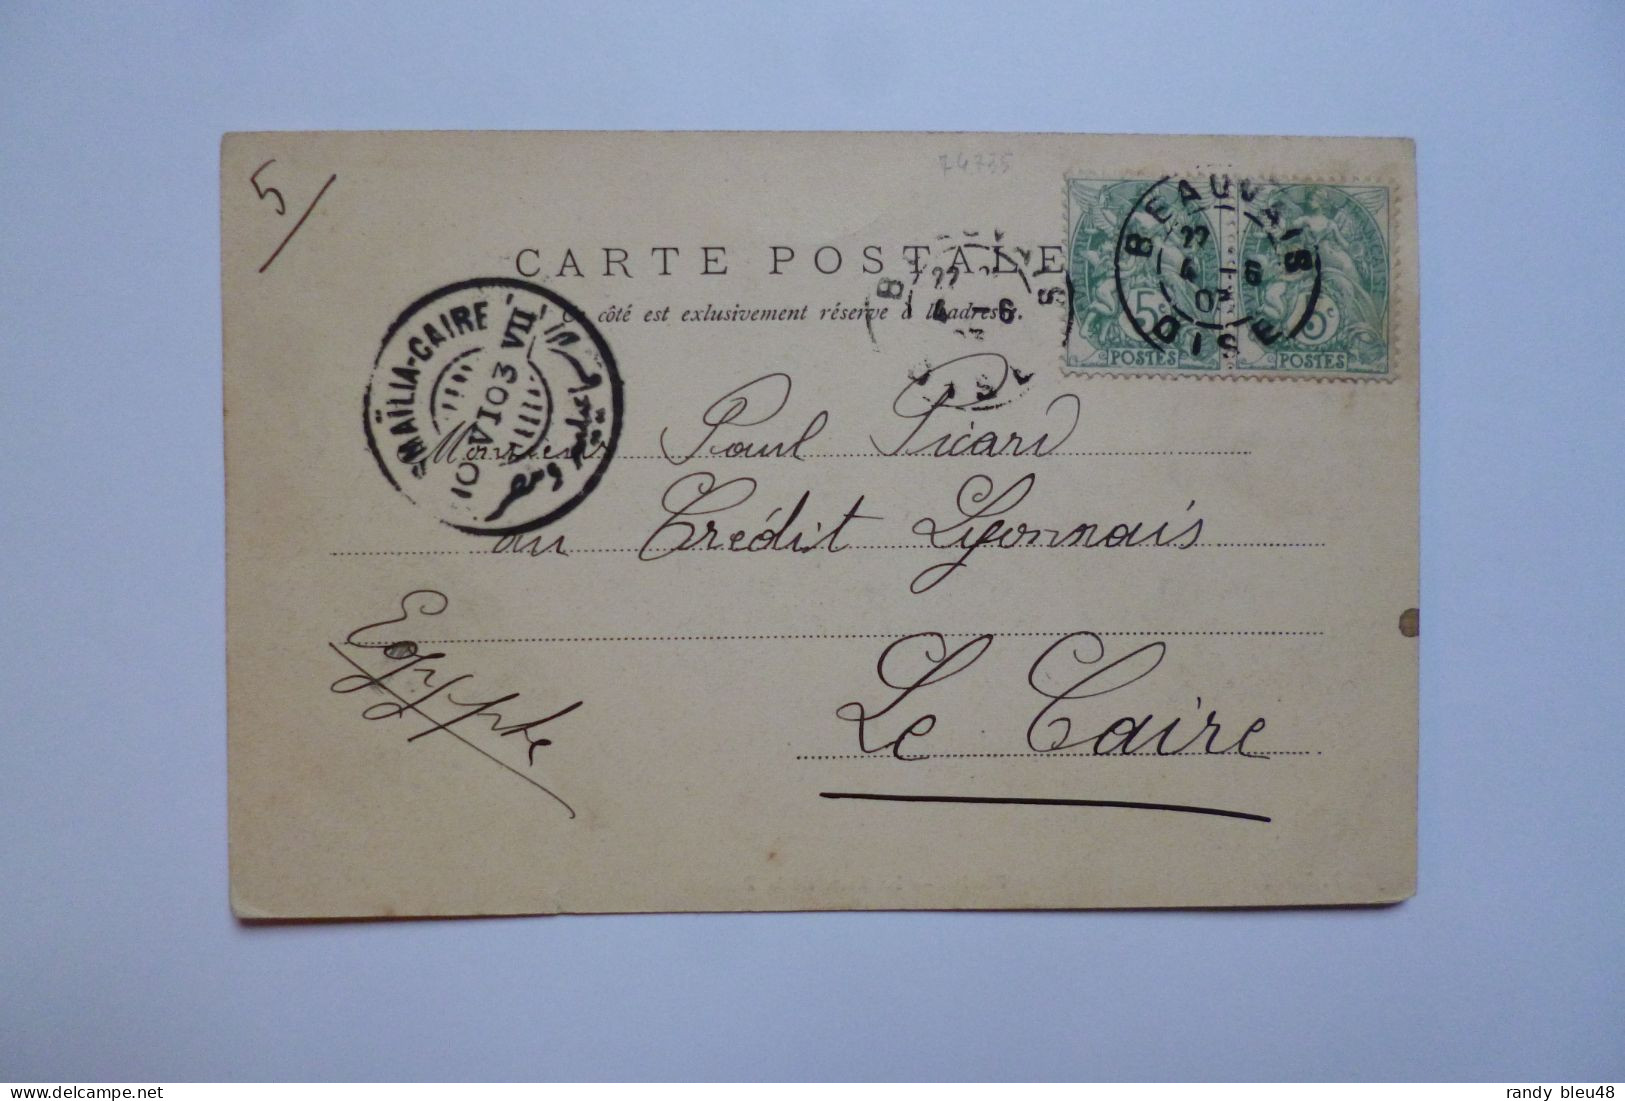 5/
74735
CARTE POSTALE
Ce côté est exlusivement réservé à l'adresse.
BEAUVAIS
22
4 - 6
03
OISE
5c 5c
POSTES POSTES
22
4 - 6
MAÏLIA-CAIRE
10 VI 03 VII
Monsieur Paul Picard
au Crédit Lyonnais
Egypte
Le Caire
randy bleu48